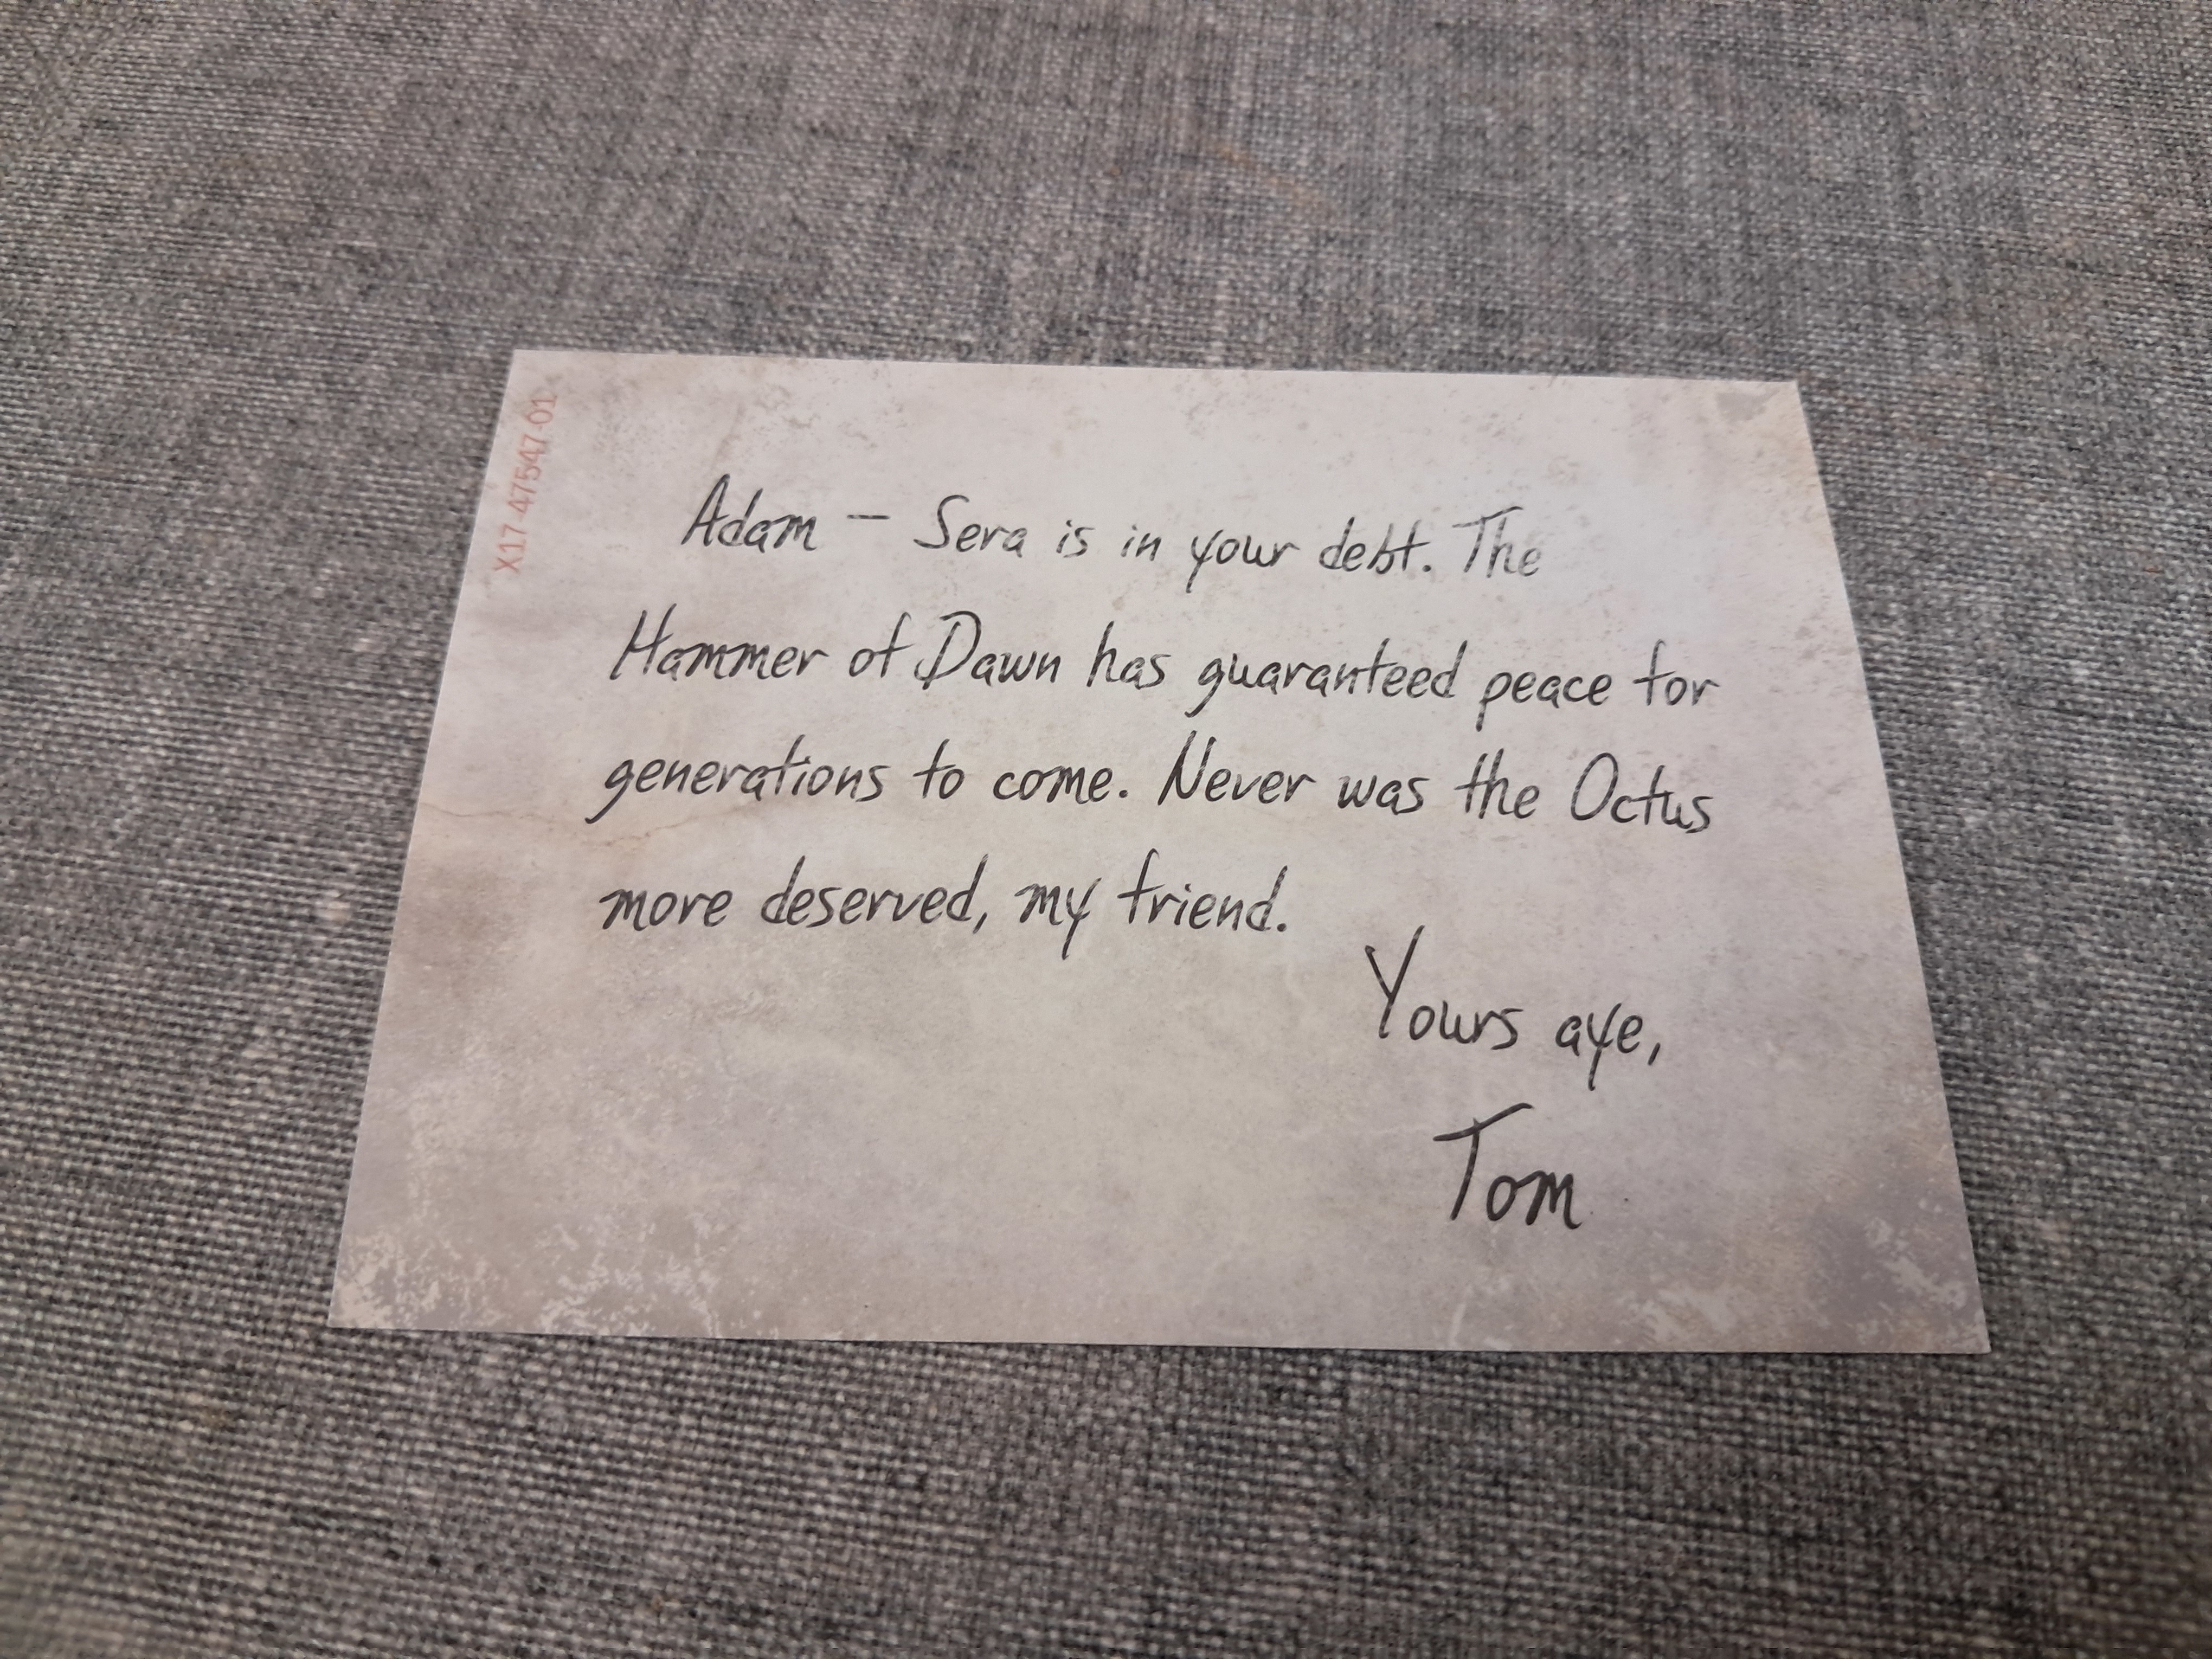 X17-47547-01
Adam – Sera is in your debt. The
Hammer of Dawn has guaranteed peace for
generations to come. Never was the Octus
more deserved, my friend.
Yours aye,
Tom